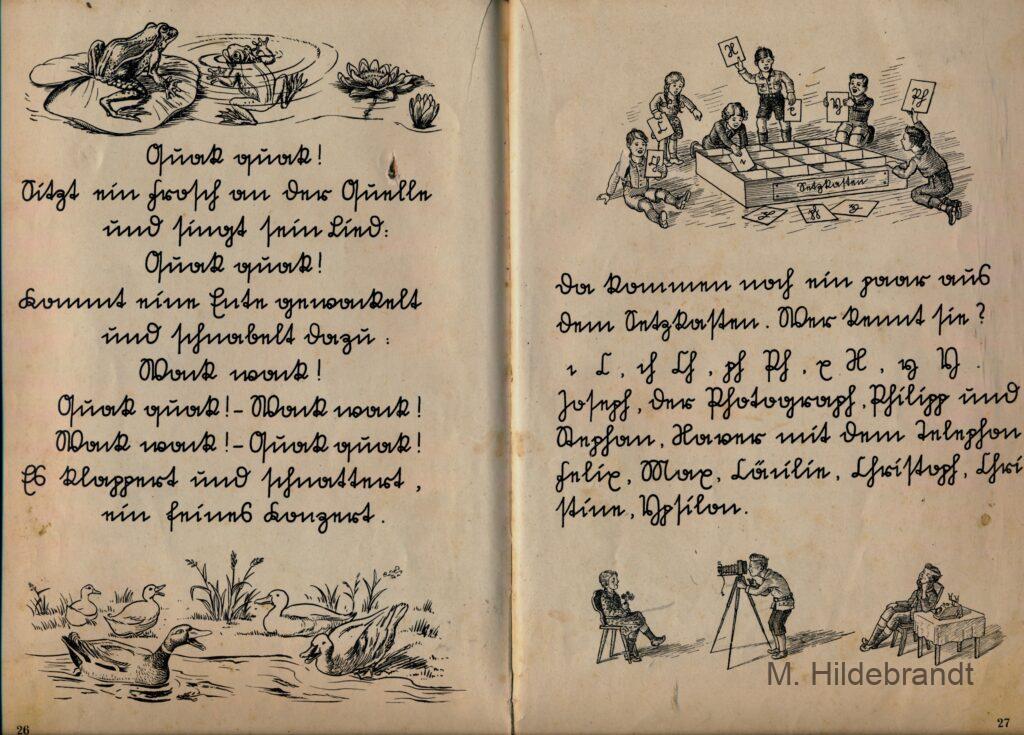 Quak quak!
Sitzt ein Frosch an der Quelle
und singt sein Lied:
Quak quak!
Kommt eine Ente gewackelt
und schnabelt dazu:
Wack wack!
Quak quak! - Wack wack!
Wack wack! - Quak quak!
Es klappert und schnattert,
ein feines Konzert.
26
X
Ph
Y
Setzkasten
Da kommen noch ein paar aus
dem Setzkasten. Wer kennt sie?
c C, ch Ch, ph Ph, x X, y Y.
Joseph, der Photograph, Philipp und
Stephan, Xaver mit dem Telephon
Felix, Max, Cäcilie, Christoph, Chri
stine, Ypsilon.
M. Hildebrandt
27